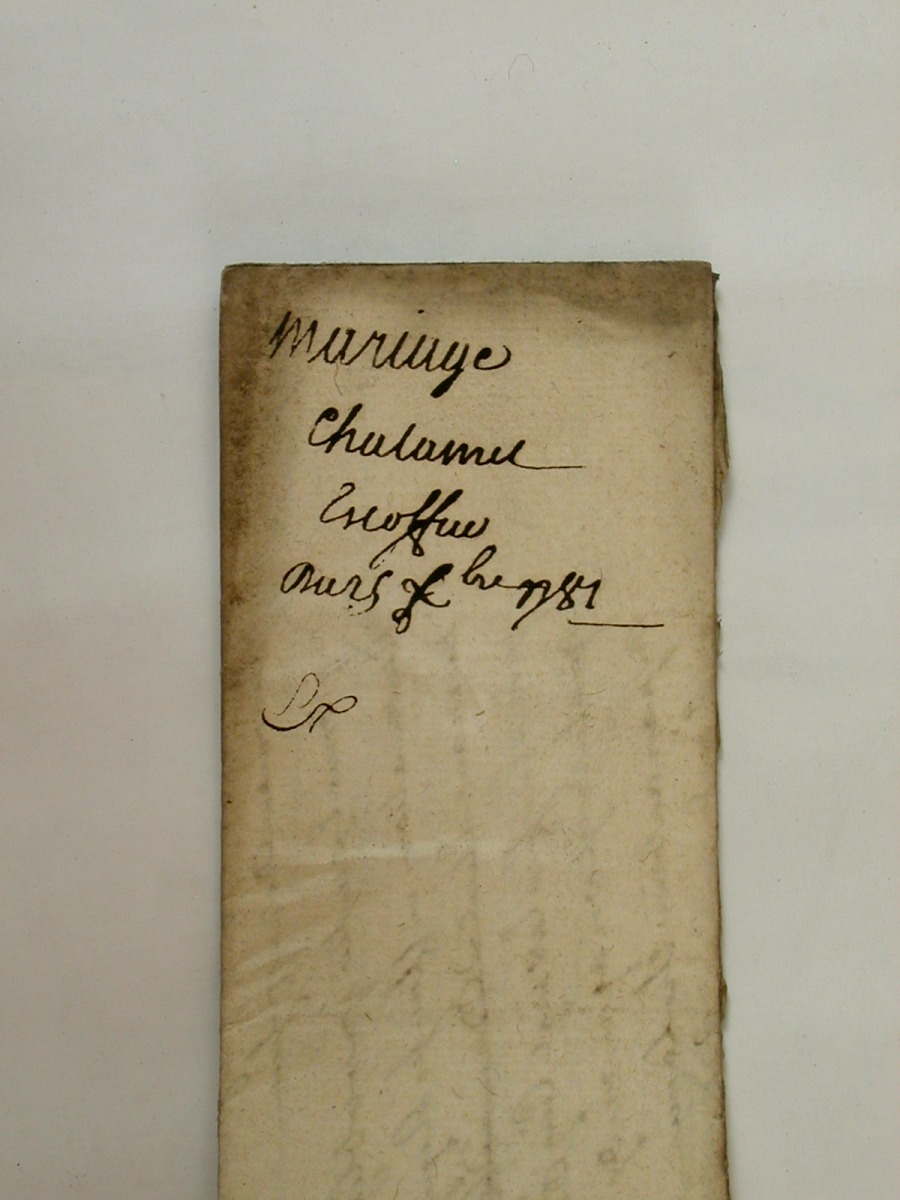 Mariage
Chalamel
Escoffier
Du 25 xbre 1781